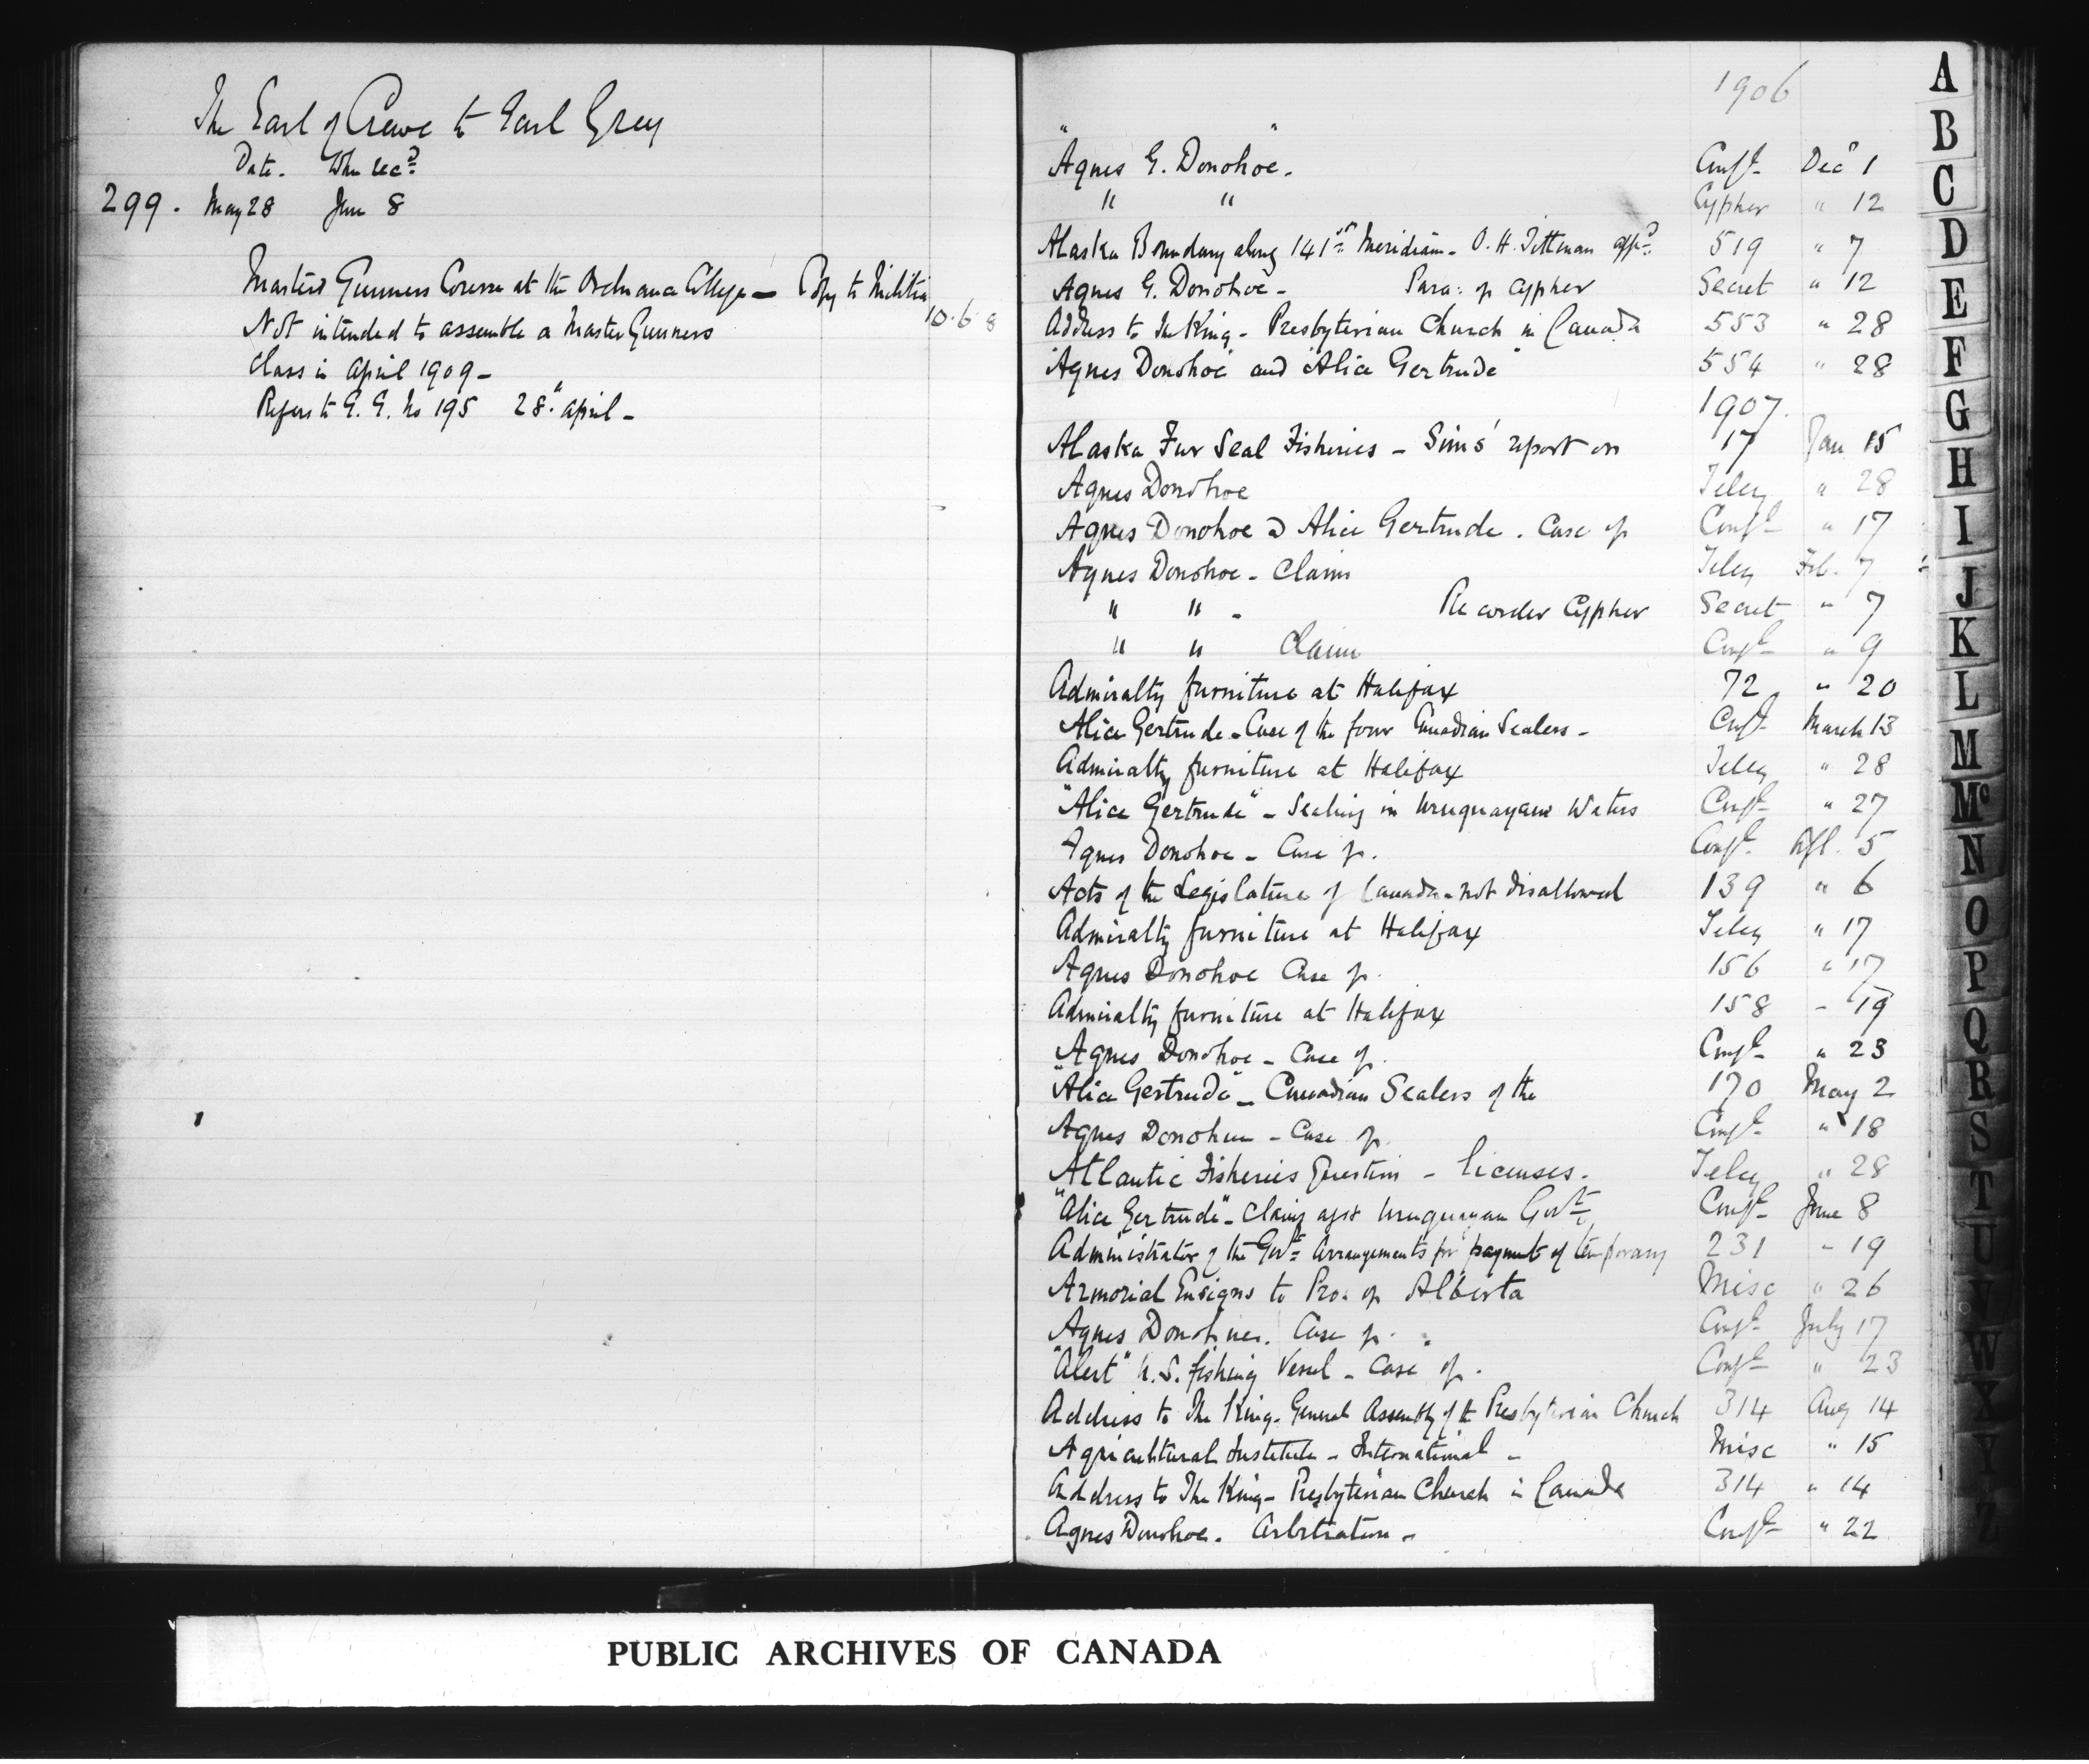 The Earl of Crewe to Earl Grey
Date. When recd
299. May 28 June 8
Masters Gunners Course at the Ordnance College — Copy to Militia
10.6.8
Not intended to assemble a Master Gunners
class in April 1909 –
Refers to G. G. No 195 28th April –
1906
"Agnes G. Donohoe". Confl Decr 1
" " Cypher " 12
Alaska Boundary along 141st Meridian – O. H. Tittman appd 519 " 7
Agnes G. Donohoe – Para: of cypher Secret " 12
Address to The King – Presbyterian Church in Canada 553 " 28
"Agnes Donohoe" and "Alice Gertrude" 554 " 28
1907.
Alaska Fur Seal Fisheries – Sims' report on 17 Jan 15
Agnes Donohoe Teleg " 28
Agnes Donohoe & Alice Gertrude. Case of Confl " 17
Agnes Donohoe – Claim Teleg Feb. 7
" " – Re Cypher Secret " 7
" " Claim Confl " 9
Admiralty furniture at Halifax 72 " 20
Alice Gertrude – Case of the four Canadian Sealers – Confl March 13
Admiralty furniture at Halifax Teleg " 28
"Alice Gertrude" – Sealing in Uruguayan Waters Confl " 27
Agnes Donohoe – Case of. Confl Apl. 5
Acts of the Legislature of Canada – not disallowed 139 " 6
Admiralty furniture at Halifax Teleg " 17
Agnes Donohoe Case of. 156 " 17
Admiralty furniture at Halifax 158 – 19
Agnes Donohoe – Case of. Confl " 23
"Alice Gertrude" – Canadian Sealers of the 170 May 2
Agnes Donohue – Case of. Confl " 18
Atlantic Fisheries Question – licenses. Teleg " 28
"Alice Gertrude" – Claims agst Uruguayan Govt Confl June 8
Administrator of the Govt Arrangements for payment of temporary 231 – 19
Armorial Ensigns to Pro: of Alberta Misc " 26
Agnes Donohue. Case of. Confl July 17
"Alert" U.S. fishing Vessel – Case of. Confl " 23
Address to The King – General Assembly of the Presbyterian Church 314 Aug 14
Agricultural Institute – International – Misc " 15
Address to The King – Presbyterian Church in Canada 314 " 14
Agnes Donohoe. Arbitration – Confl " 22
A
B
C
D
E
F
G
H
I
J
K
L
M
Mc
N
O
P
Q
R
S
T
U
V
W
X
Y
Z
PUBLIC ARCHIVES OF CANADA